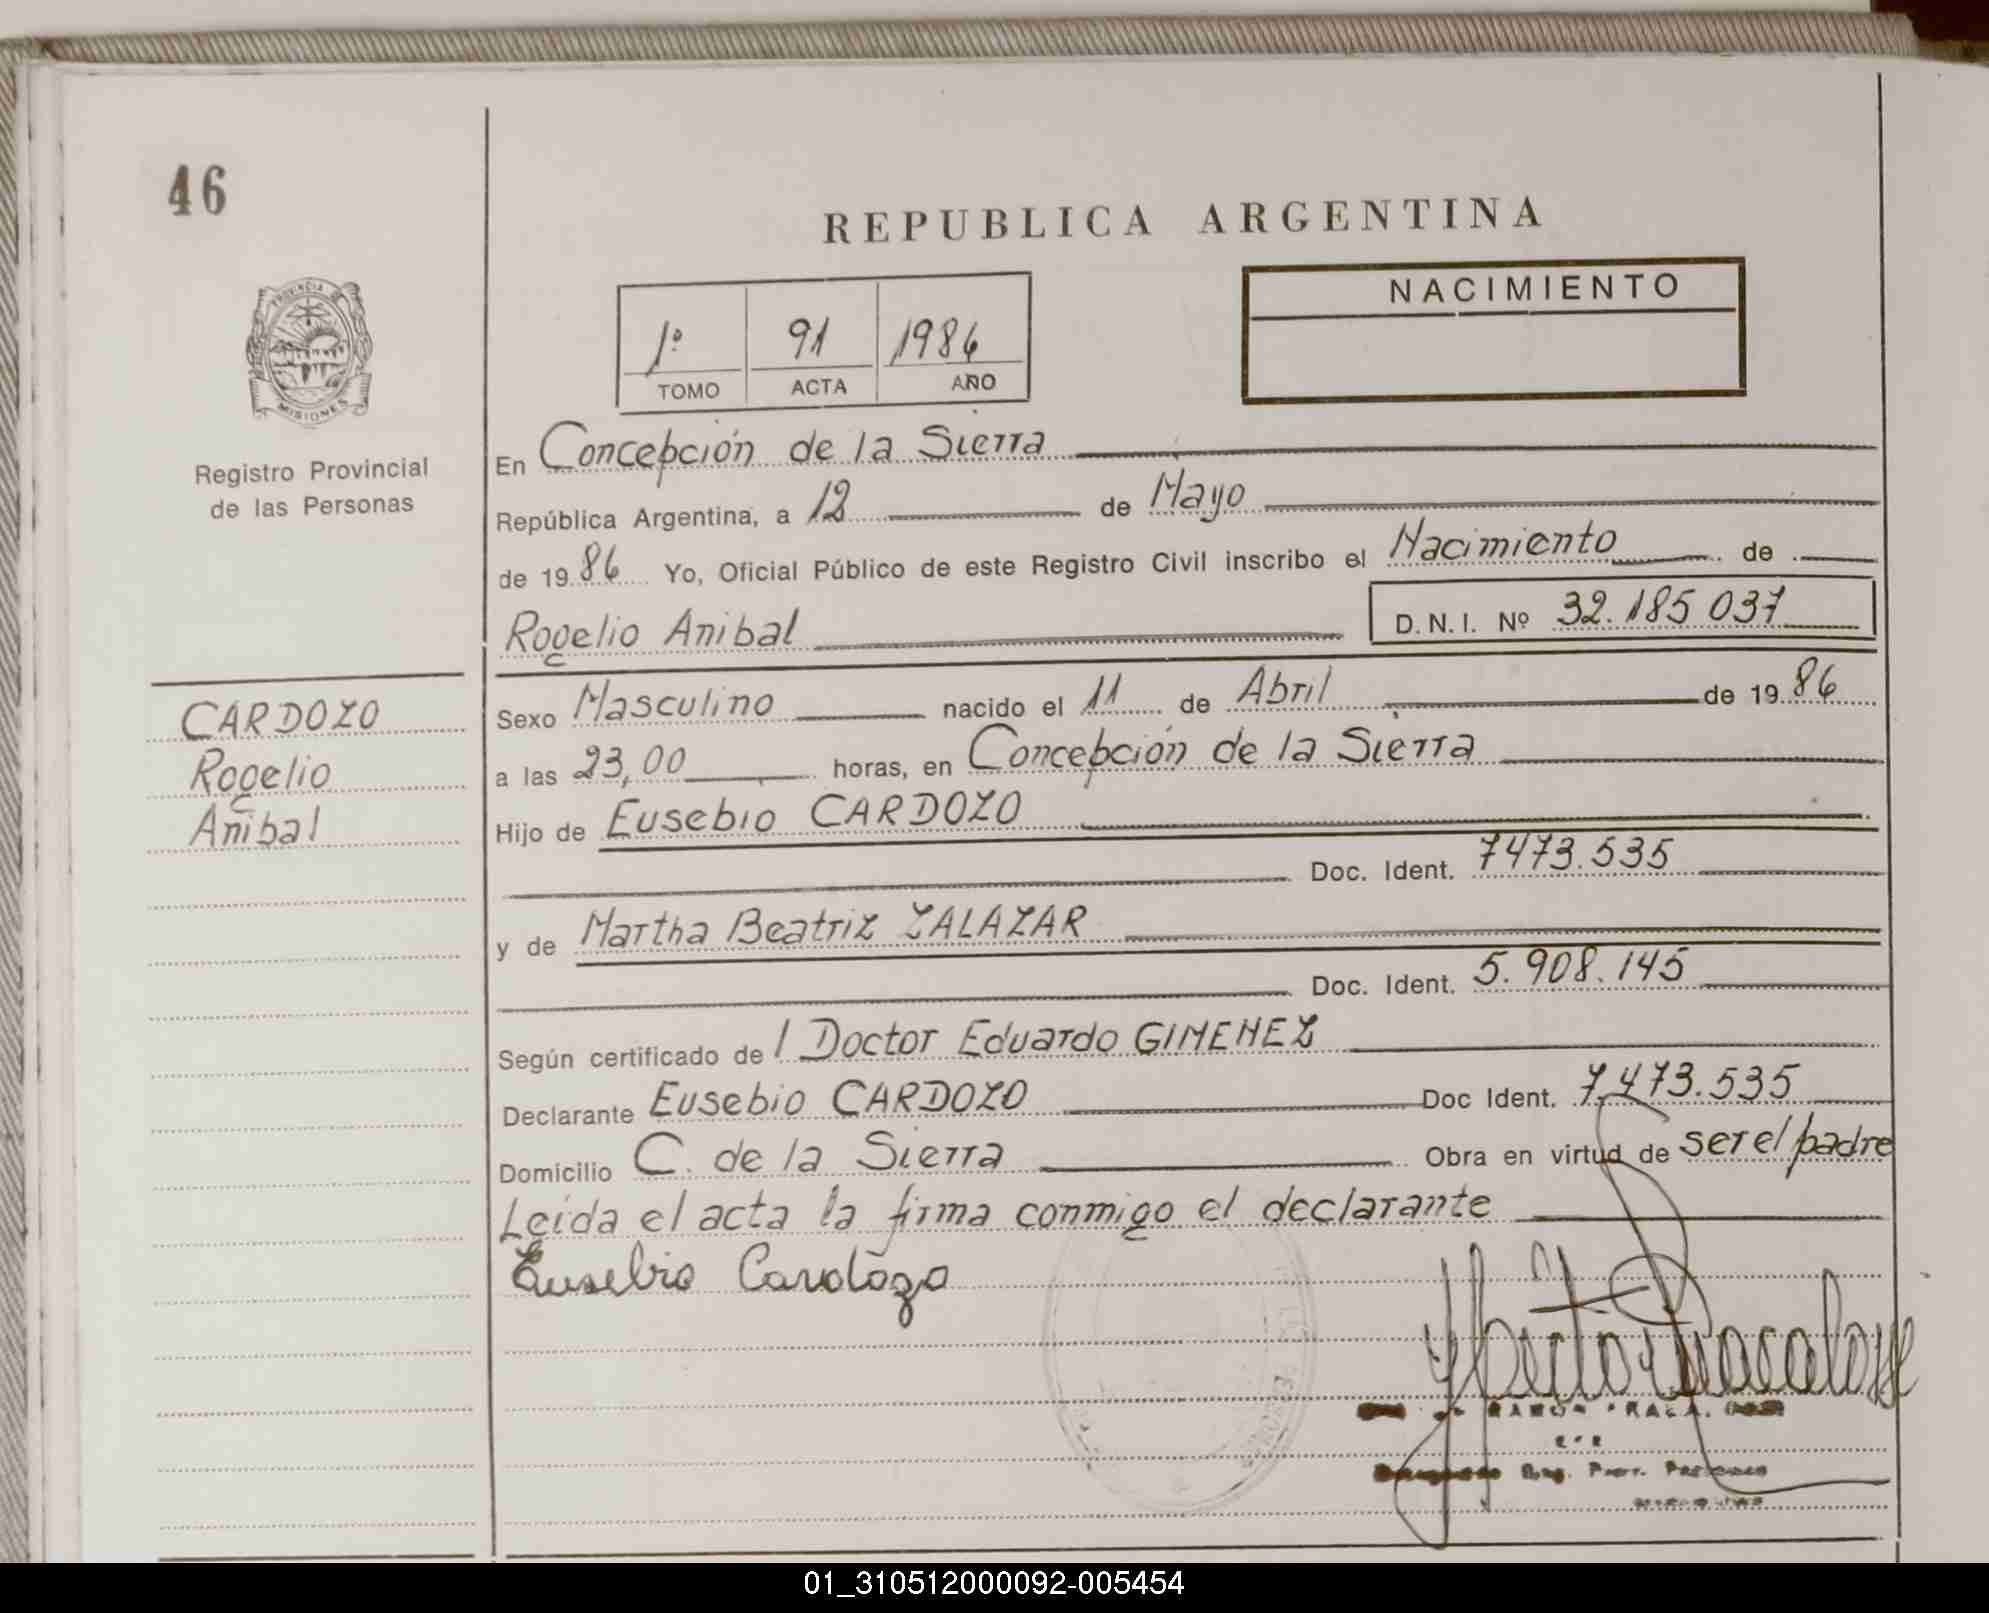 46
REPUBLICA ARGENTINA
NACIMIENTO
1º 91 1986
TOMO ACTA AÑO
PROVINCIA DE
MISIONES
Registro Provincial
de las Personas
En Concepción de la Sierra
República Argentina, a 12 de Mayo
de 1986 Yo, Oficial Público de este Registro Civil inscribo el Nacimiento de
Rogelio Anibal D.N.I. Nº 32.185 037
CARDOZO
Rogelio
Anibal
Sexo Masculino nacido el 11 de Abril de 1986
a las 23,00 horas, en Concepción de la Sierra
Hijo de Eusebio CARDOZO
Doc. Ident. 7473.535
y de Martha Beatriz ZALAZAR
Doc. Ident. 5.908.145
Según certificado de l Doctor Eduardo GIMENEZ
Declarante Eusebio CARDOZO Doc Ident. 7.473.535
Domicilio C. de la Sierra Obra en virtud de ser el padre
Leida el acta la firma conmigo el declarante
Eusebio Cardozo
RAMON
Prov. Personas
01_310512000092-005454